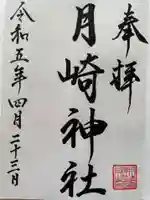 奉拝
月崎神社
令和五年四月二十三日